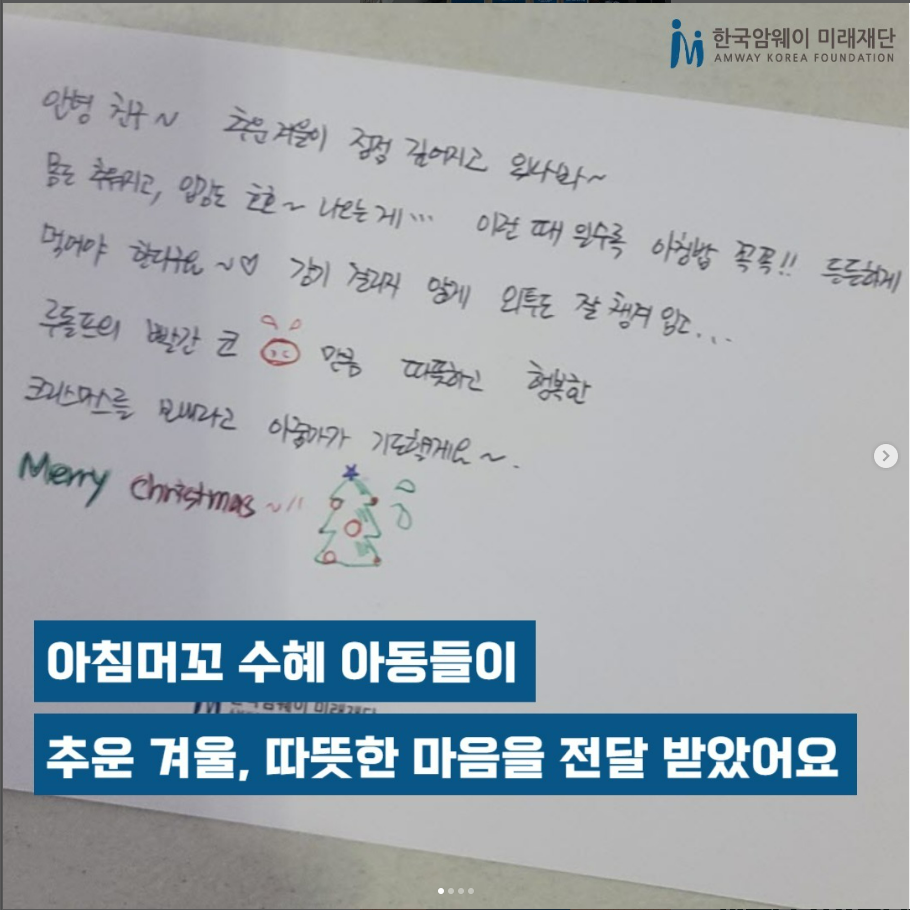 한국암웨이 미래재단
AMWAY KOREA FOUNDATION
안녕 친구~ 추운 겨울이 점점 깊어지고 있나봐~
몸도 추워지고, 입김도 호호~ 나오는게... 이런 때 일수록 아침밥 꼭꼭!! 든든하게
먹어야 한다구요~♡ 감기 걸리지 않게 외투도 잘 챙겨 입고...
루돌프의 빨간 코 만큼 따뜻하고 행복한
크리스마스를 보내라고 기도할게요~.
Merry Christmas~!!
아침머꼬 수혜 아동들이
한국암웨이 미래재단
추운 겨울, 따뜻한 마음을 전달 받았어요